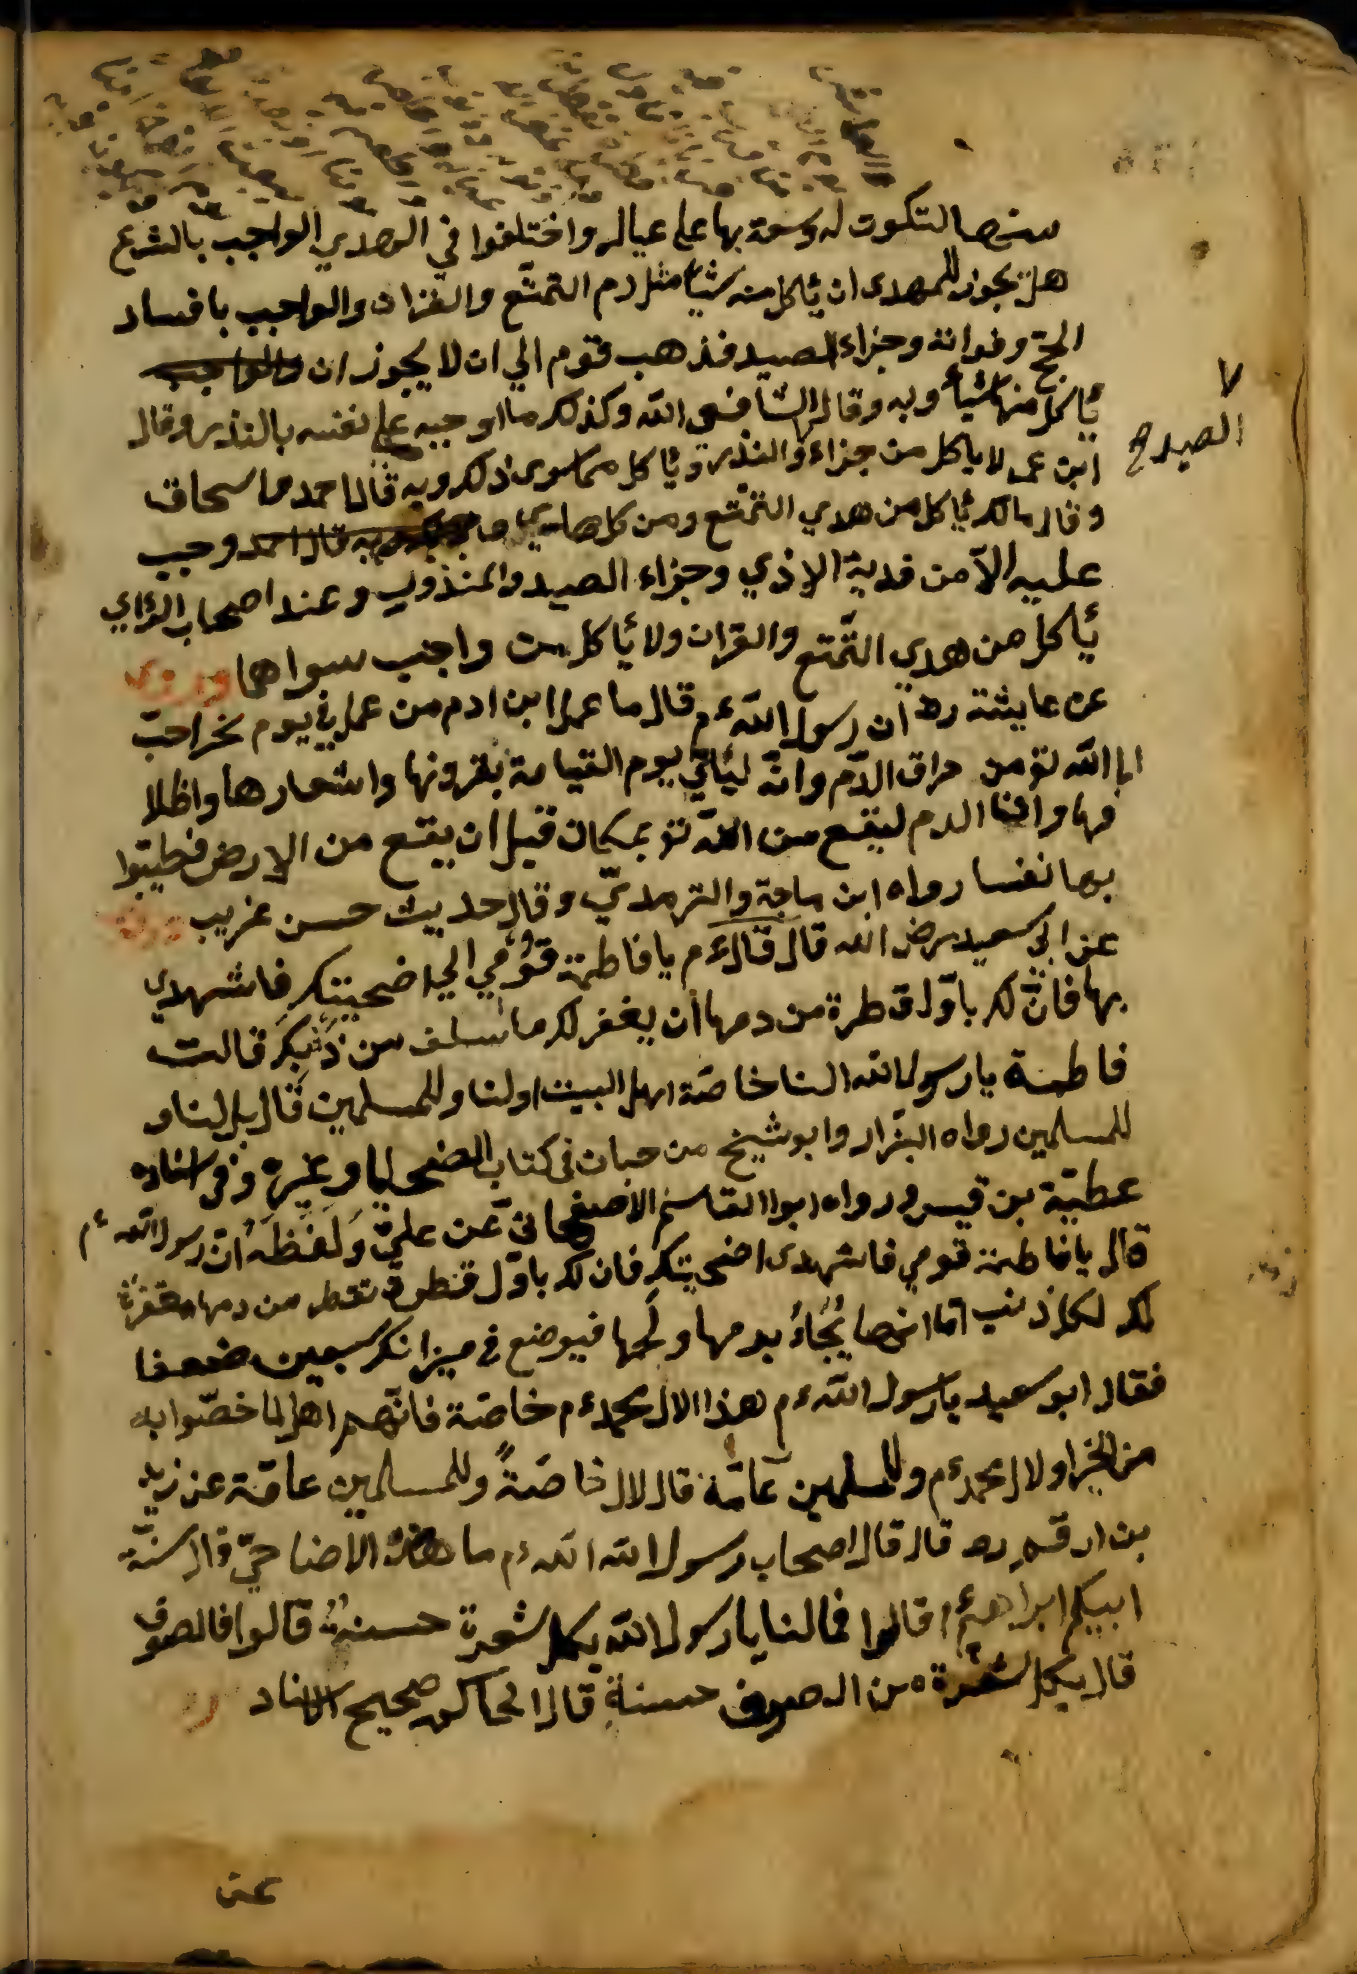 سنها لتكون له وسعة بها على عياله واختلفوا في الهدي الواجب بالشرع
هل يجوز للمهدى ان يأكل منه شيأ مثل دم التمتّع والقران والواجب بافساد
الحجّ وفواته وجزاء الصيد فذهب قوم الي ان لا يجوز ان والواجب
يأكل منها شيأ وبه وقال الشافعى الله وكذلك ما اوجبه على نفسه بالنذر وقال
الصيد صح
ابن عمر لا ياكل من جزاء والنذر ويأكل مما سوى ذلك وبه قال احمد وما سحاق
وقال مالك يأكل من هدي التمتّع ومن كل هدي ما وبه قال احمد وجب
عليه الاّ من فدية الاذي وجزاء الصيد والمنذور وعند اصحاب الرأي
يأكل من هدي التّمتع والقران ولا يأكل من واجب سواهما
عن عايشة رضـ ان رسول الله ءم قال ما عمل ابن ادم من عمل في يوم نحر احبّ
الى الله تع من هراق الدّم وانّه ليأتي يوم القيامة بقرونها واشعارها واظلا
فها وانّما الدم ليقع من اللّه تع بمكان قبل ان يقع من الارض فطيبّوا
بها نفسا رواه ابن ماجة والترمديّ وقال حديث حسن غريب
عن ابي سعيد رضى الله قال قال ءم يا فاطمة قومي الي اضحيتك فاشهدي
بها فانّ لك باوّل قطرة من دمها أن يغفر لك ما سلف من ذنبك قالت
فاطمة يا رسول الله النا خاصّة اهل البيت او لنا وللمسلمين قال بل لنا و
للمسلمين رواه البزّار وابو شيخ من حبان فى كتاب الضحايا وغيره وفى اسناده
عطيّة بن قيس ورواه ابوا القاسم الاصفهانى عن علي وَلفظه انّ رسول اللّه ءم
قال يا فاطمة قومي فاشهدى اضحيتك فان لك باوّل قطرة تقطر من دمها مغفرة
لك لكل ذنب اما انها يُجَاءُ بدمها ولحمها فيوضع في ميزانك سبعين ضعفا
فقال ابو سعيد يا رسول اللّه ءم هذا الال محمد ءم خاصّة فانّهم اهل لما خصّوا به
من الخير او لال محمد ءم وللمسلمين عامّة قال لال خاصّةً وللمسلمين عامّة عن زيد
بن ارقم رضـ قال قال اصحاب رسول الله الله ءم ما هذه الاضاحيّ قال سنّة
ابيكم ابراهيم ءم قالوا فما لنا يا رسول اللّه بكل شعرة حسنة قالوا فالصوف
قال بكل شعرة من الصوف حسنة قال الحاكم صحيح الاسناد
عن